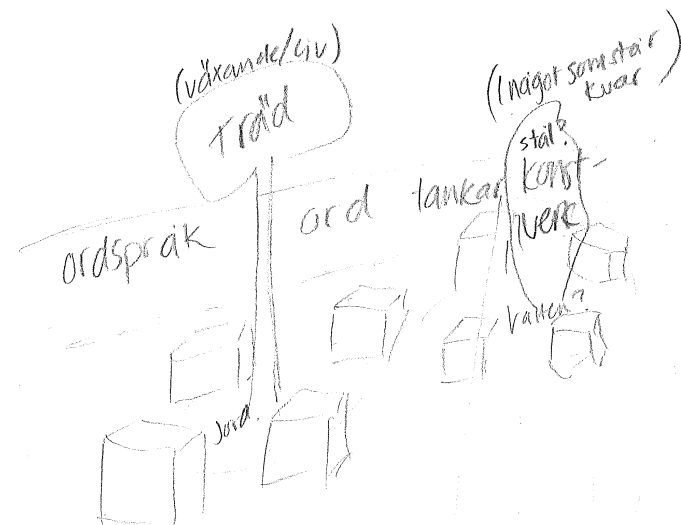 (växande/Liv)
träd
(något som står
kvar)
stål?
konst-
verk
ordspråk
ord
tankar
vatten?
Jord.